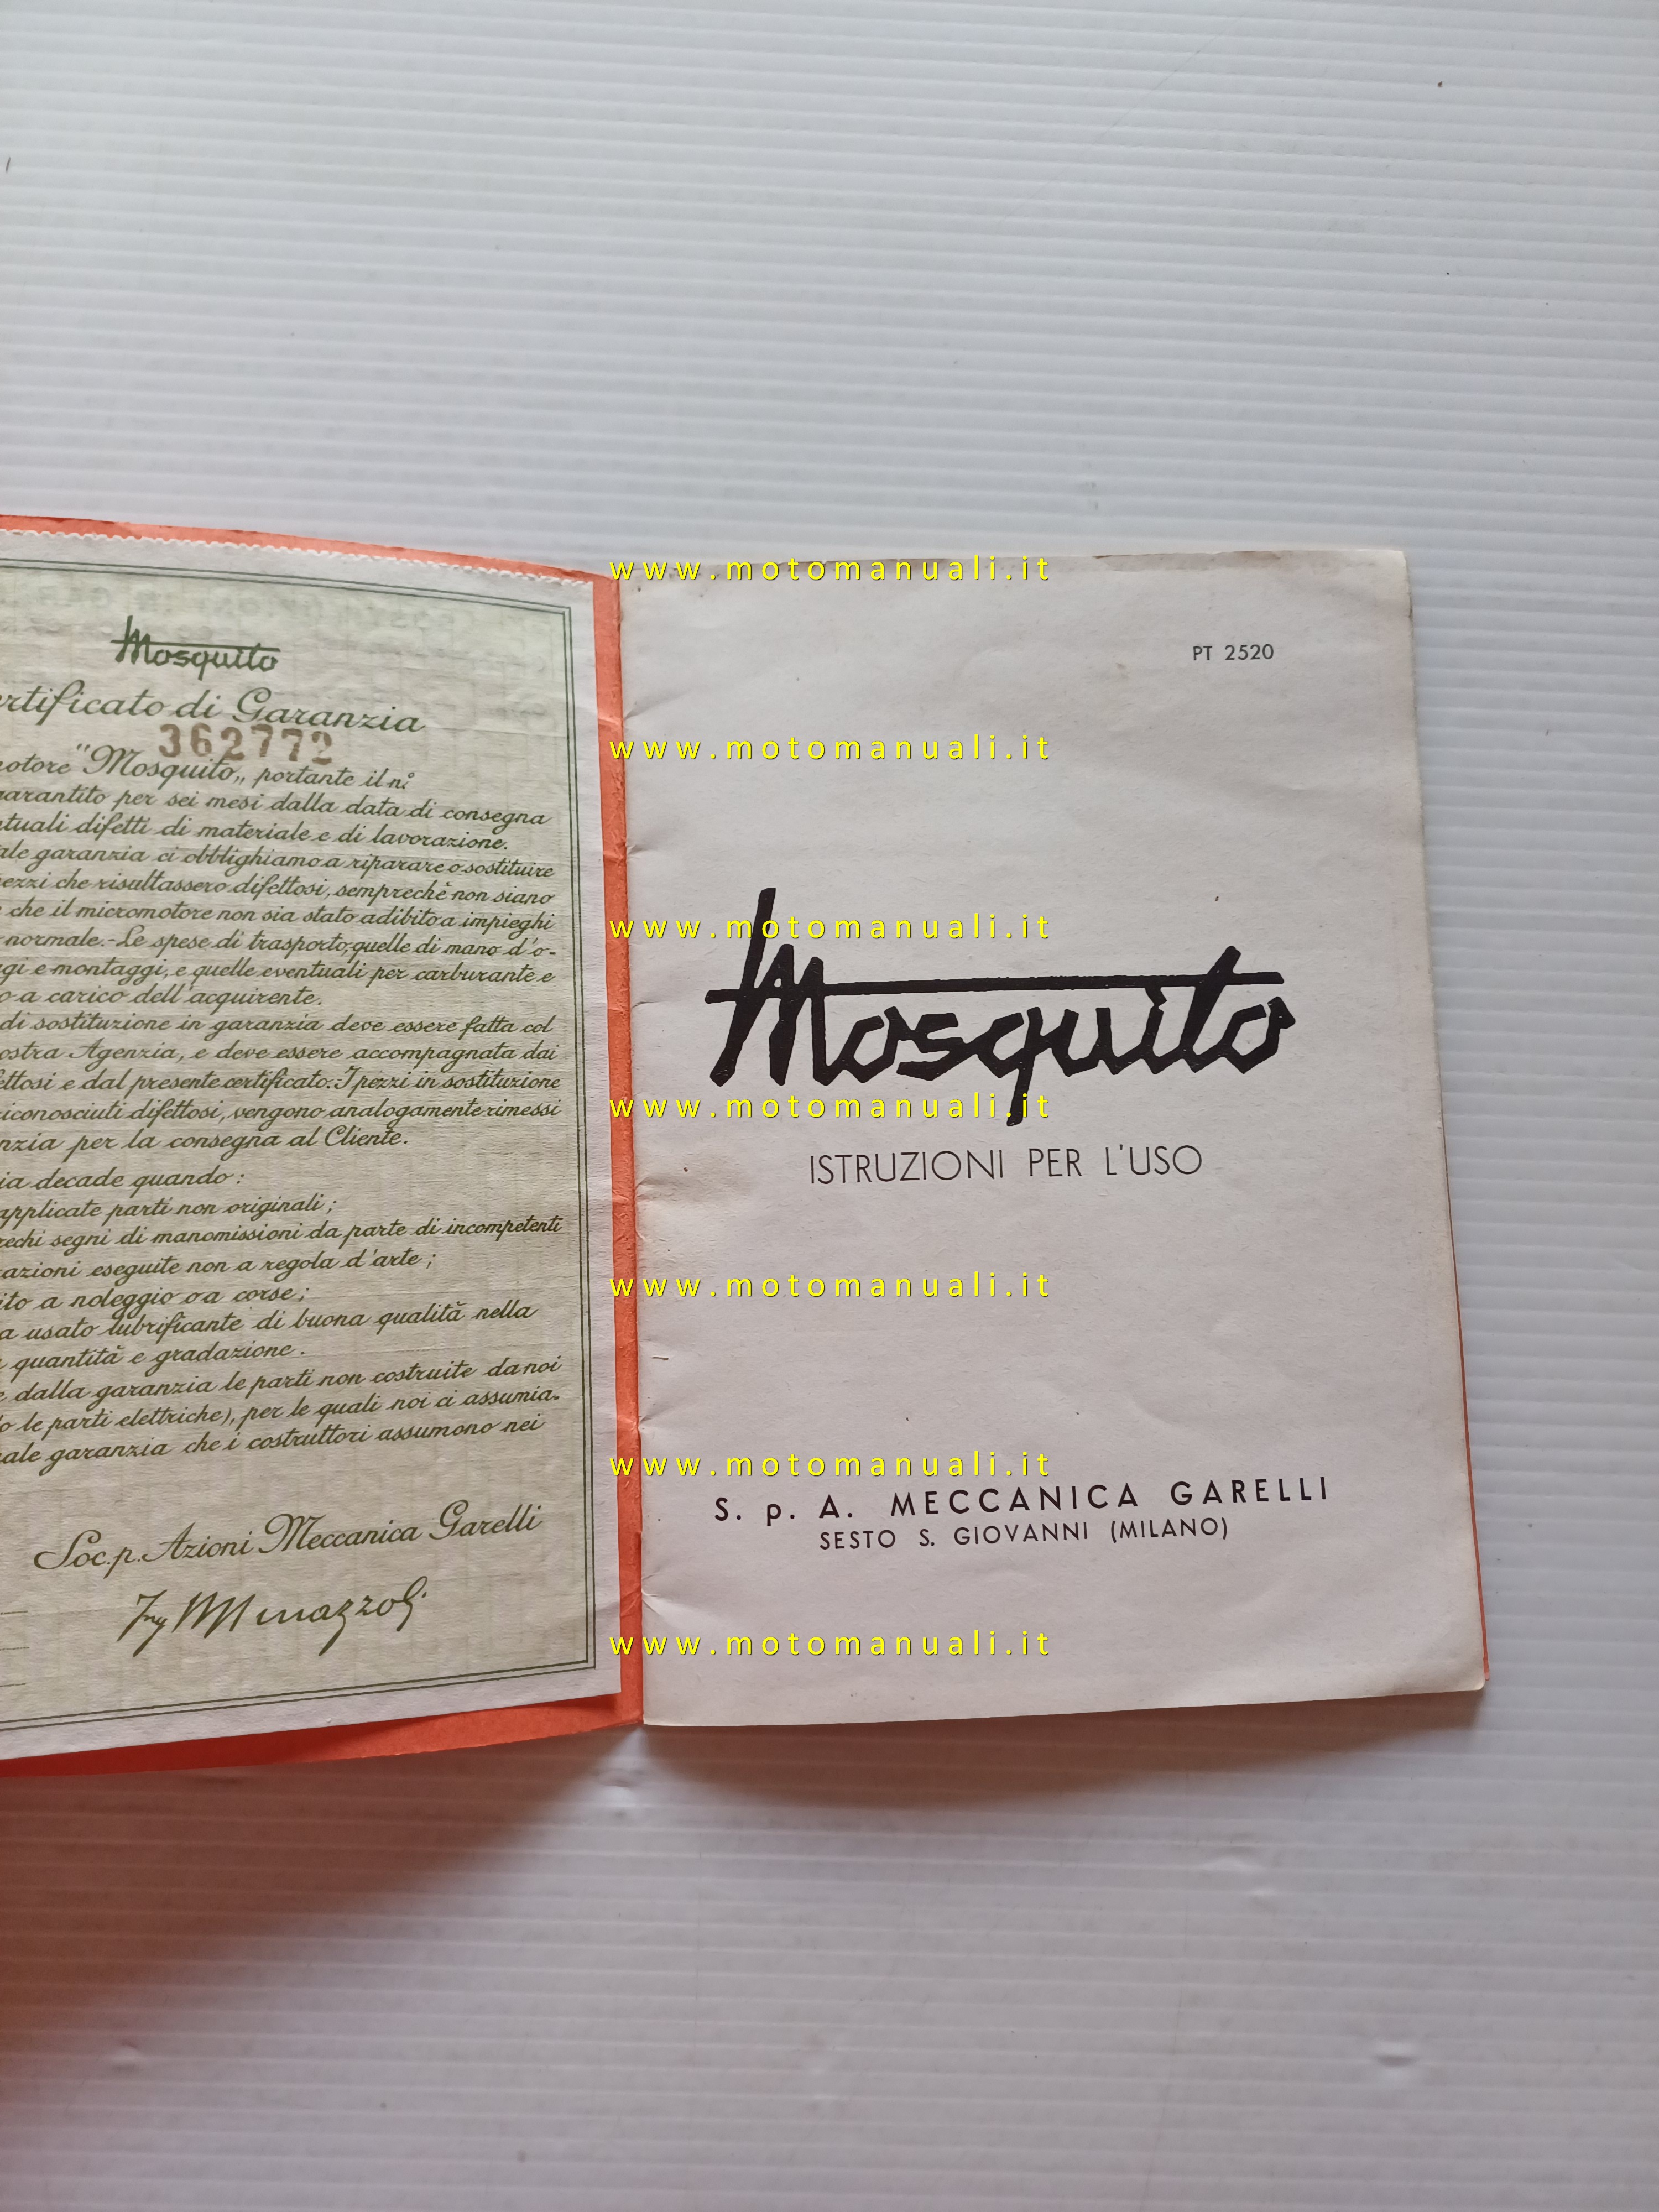 Mosquito
Certificato di Garanzia
362772
motore "Mosquito„ portante il n°
garantito per sei mesi dalla data di consegna
difetti di materiale e di lavorazione.
garanzia ci obblighiamo a riparare o sostituire
che risultassero difettosi, sempreché non siano
che il micromotore non sia stato adibito a impieghi
normale.-Le spese di trasporto, quelle di mano d'o-
e montaggi, e quelle eventuali per carburante e
a carico dell'acquirente.
di sostituzione in garanzia deve essere fatta col
Agenzia, e deve essere accompagnata dai
e dal presente certificato. I pezzi in sostituzione
difettosi, vengono analogamente rimessi
per la consegna al Cliente.
decade quando:
applicate parti non originali;
segni di manomissioni da parte di incompetenti
eseguite non a regola d'arte;
a noleggio o a corse;
usato lubrificante di buona qualità nella
quantità e gradazione.
dalla garanzia le parti non costruite da noi
le parti elettriche), per le quali noi ci assumia-
garanzia che i costruttori assumono nei
Soc. p. Azioni Meccanica Garelli
PT 2520
Mosquito
ISTRUZIONI PER L'USO
S. p. A. MECCANICA GARELLI
SESTO S. GIOVANNI (MILANO)
www.motomanuali.it
www.motomanuali.it
www.motomanuali.it
www.motomanuali.it
www.motomanuali.it
www.motomanuali.it
www.motomanuali.it